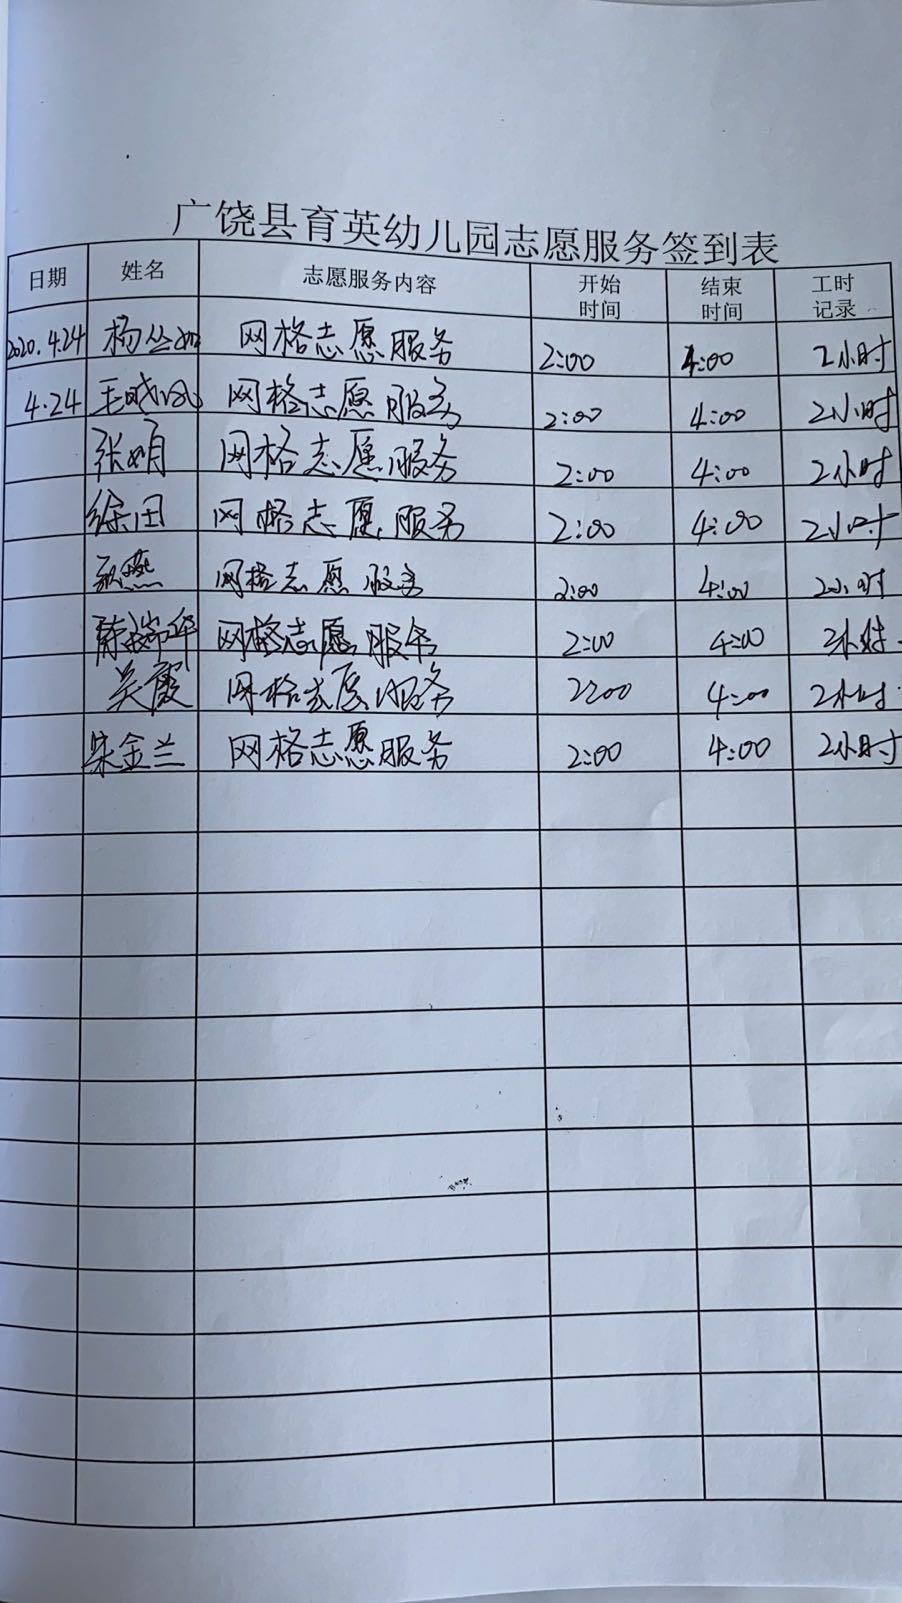 广饶县育英幼儿园志愿服务签到表
日期 姓名 志愿服务内容 开始时间 结束时间 工时记录
2020.4.24 杨丛如 网格志愿服务 2:00 4:00 2小时
4.24 网格志愿服务 2:00 4:00 2小时
张娟 网格志愿服务 2:00 4:00 2小时
徐田 网格志愿服务 2:00 4:00 2小时
燕 网格志愿服务 2:00 4:00 2小时
陈瑞华 网格志愿服务 2:00 4:00
吴霞 网格志愿服务 2:00 4:00 2小时
宋金兰 网格志愿服务 2:00 4:00 2小时